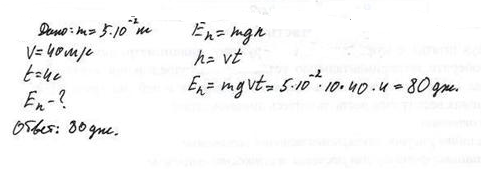 Дано: m = 5·10⁻² м
V = 40 м/с
t = 4с
Eₙ - ?
Ответ: 80 дж.
Eₙ = mgh
h = vt
Eₙ = mgvt = 5·10⁻²·10·40·4 = 80 дж.